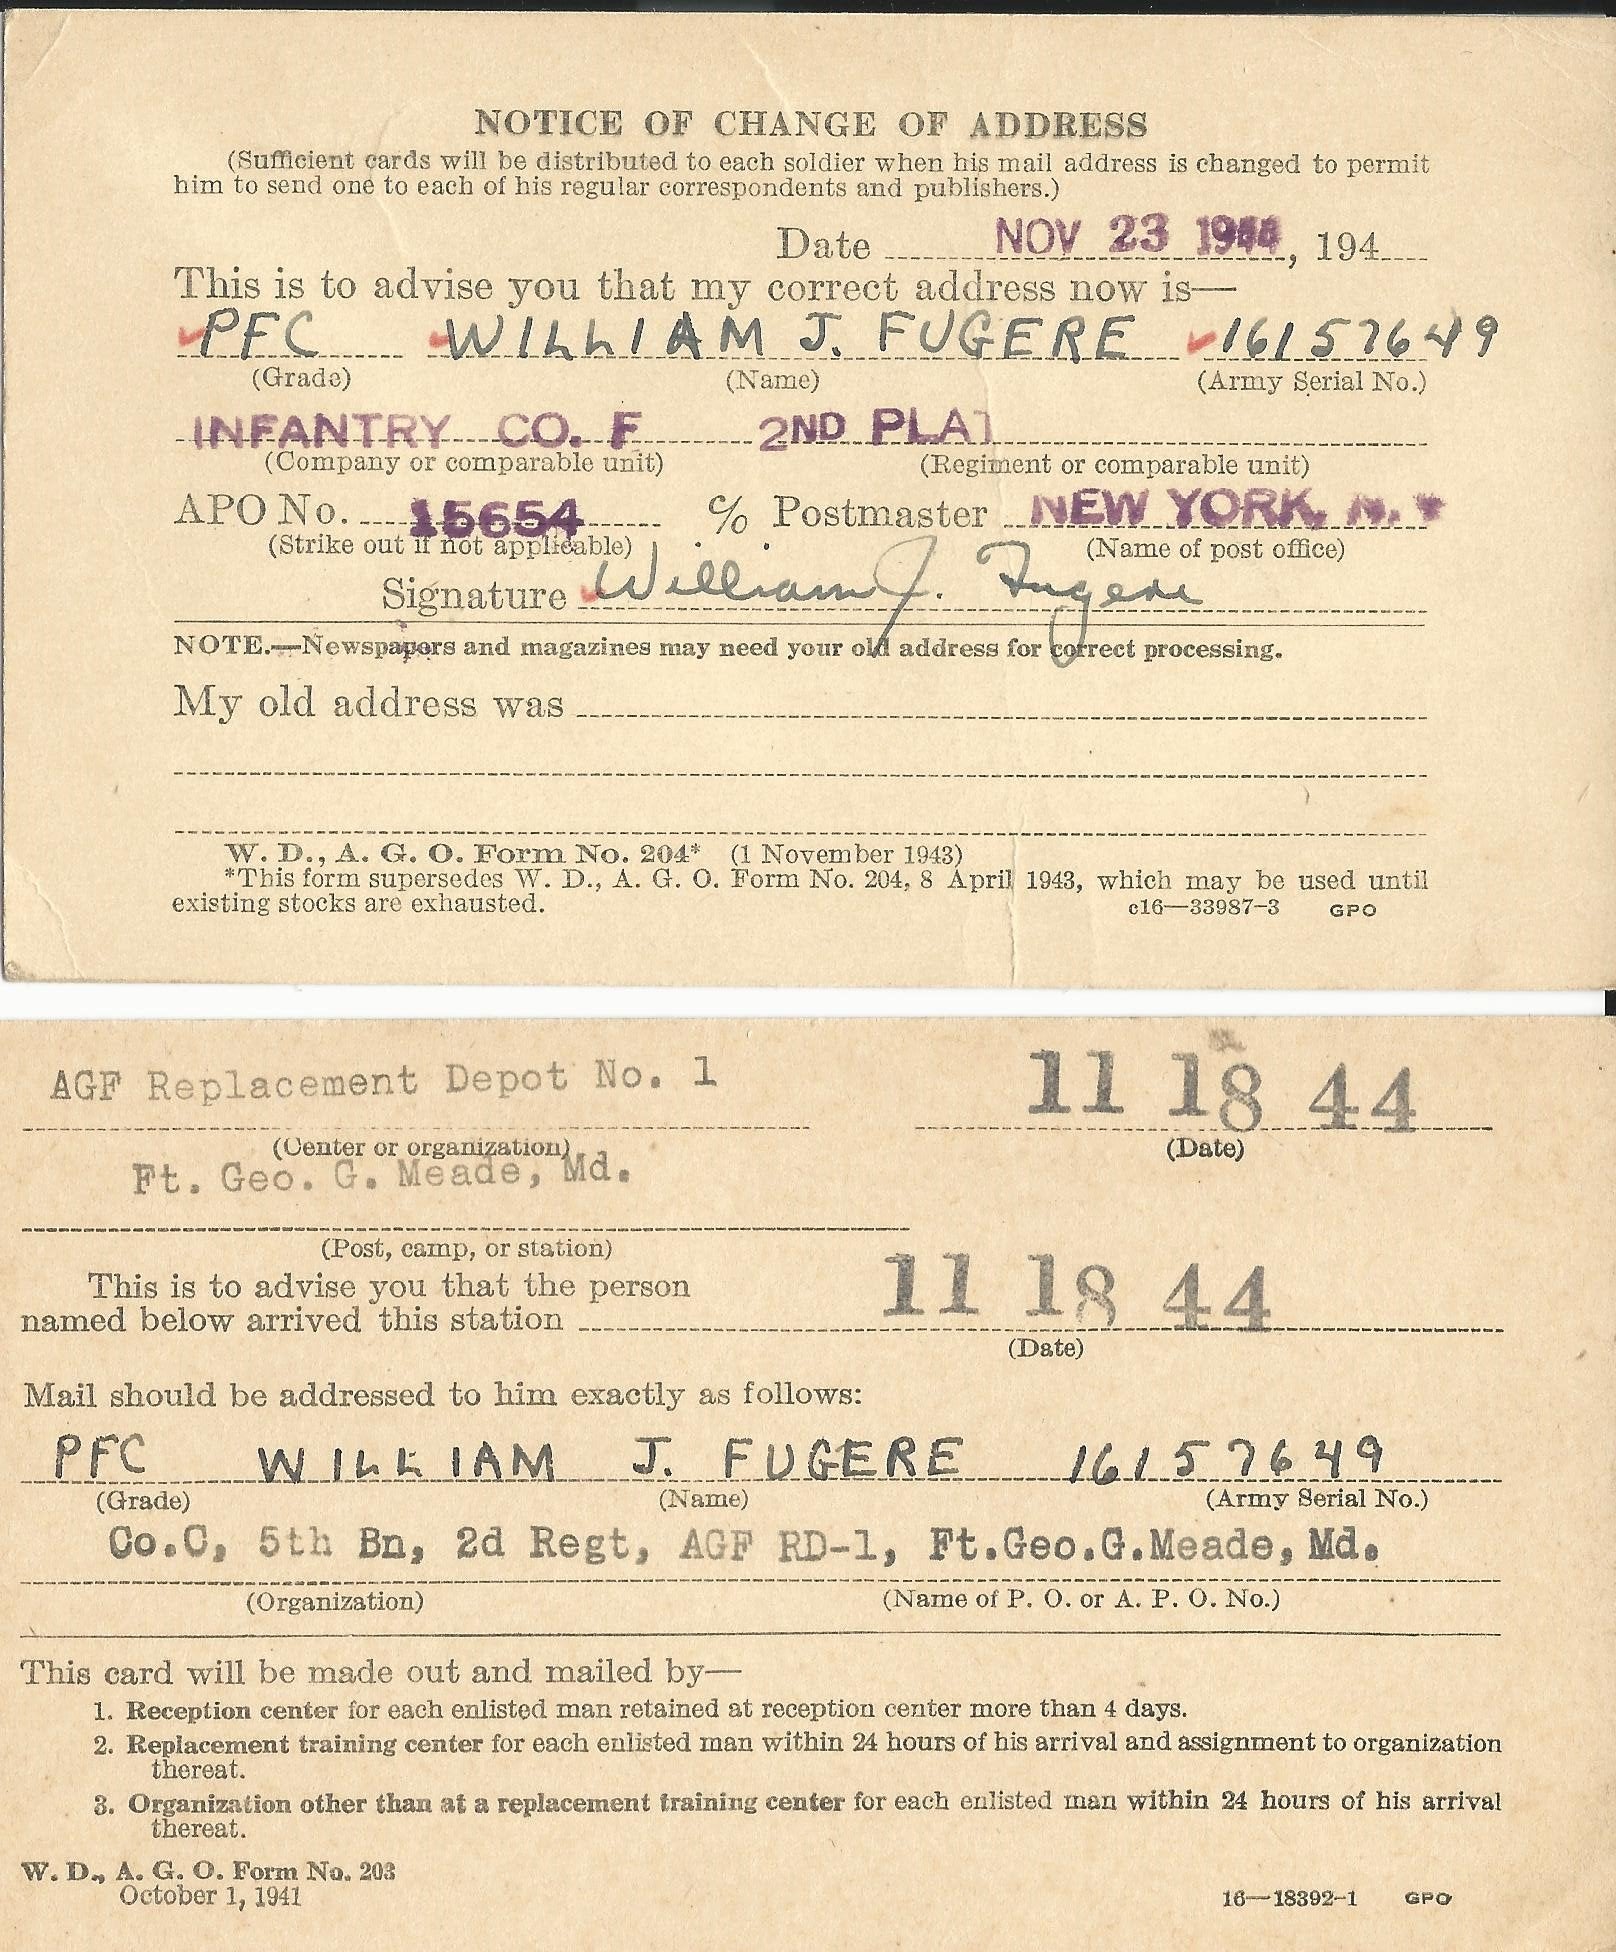 NOTICE OF CHANGE OF ADDRESS
(Sufficient cards will be distributed to each soldier when his mail address is changed to permit
him to send one to each of his regular correspondents and publishers.)
Date NOV 23 1944, 194
This is to advise you that my correct address now is—
PFC WILLIAM J. FUGERE 16157649
(Grade) (Name) (Army Serial No.)
INFANTRY CO. F 2ND PLAT
(Company or comparable unit) (Regiment or comparable unit)
APO No. 15654 c/o Postmaster NEW YORK, N. Y
(Strike out if not applicable) (Name of post office)
Signature William J. Fugere
NOTE.—Newspapers and magazines may need your old address for correct processing.
My old address was
W. D., A. G. O. Form No. 204* (1 November 1943)
*This form supersedes W. D., A. G. O. Form No. 204, 8 April 1943, which may be used until
existing stocks are exhausted. c16—33987-3 GPO
AGF Replacement Depot No. 1 11 18 44
(Center or organization) (Date)
Ft. Geo. G. Meade, Md.
(Post, camp, or station)
This is to advise you that the person
named below arrived this station 11 18 44
(Date)
Mail should be addressed to him exactly as follows:
PFC WILLIAM J. FUGERE 16157649
(Grade) (Name) (Army Serial No.)
Co.C, 5th Bn, 2d Regt, AGF RD-1, Ft.Geo.G.Meade, Md.
(Organization) (Name of P. O. or A. P. O. No.)
This card will be made out and mailed by—
1. Reception center for each enlisted man retained at reception center more than 4 days.
2. Replacement training center for each enlisted man within 24 hours of his arrival and assignment to organization
thereat.
3. Organization other than at a replacement training center for each enlisted man within 24 hours of his arrival
thereat.
W. D., A. G. O. Form No. 203
October 1, 1941 16—18392-1 GPO